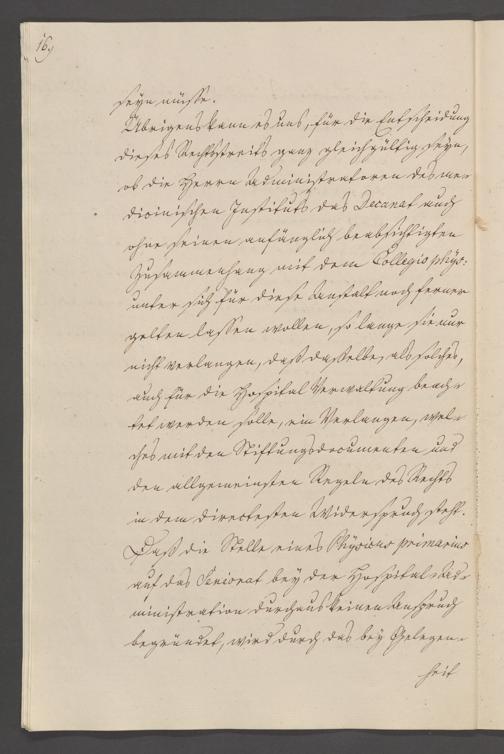 169
seyn müsse.
Übrigens kann es uns, für die Entscheidung
dieses Rechtsstreits ganz gleichgültig seyn,
ob die Herrn Administratoren des me-
dicinischen Instituts das Decanat auch
ohne seinen anfänglich beabsichtigten
Zusammenhang mit dem Collegio phys:
unter sich für diese Anstalt noch ferner
gelten lassen wollen, so lange sie nur
nicht verlangen, daß dasselbe, als solches,
auch für die Hospital Verwaltung beach-
tet werden solle, ein Verlangen, wel-
ches mit den Stiftungsdocumenten und
den allgemeinsten Regeln des Rechts
in dem directesten Widerspruch steht.
Daß die Stelle eines Physicus primarius
auf das Seniorat bey der Hospital-Ad-
ministration durchaus keinen Anspruch
begründet, wird durch das bey Gelegen-
heit